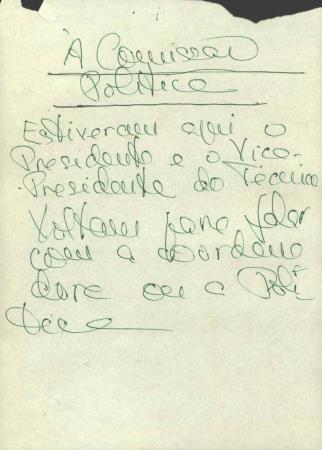 À Comissão
Política
Estiveram aqui o
Presidente e o Vice-
Presidente do Técnico
Voltam para falar
com a coordena
dora ou a Polí
tica